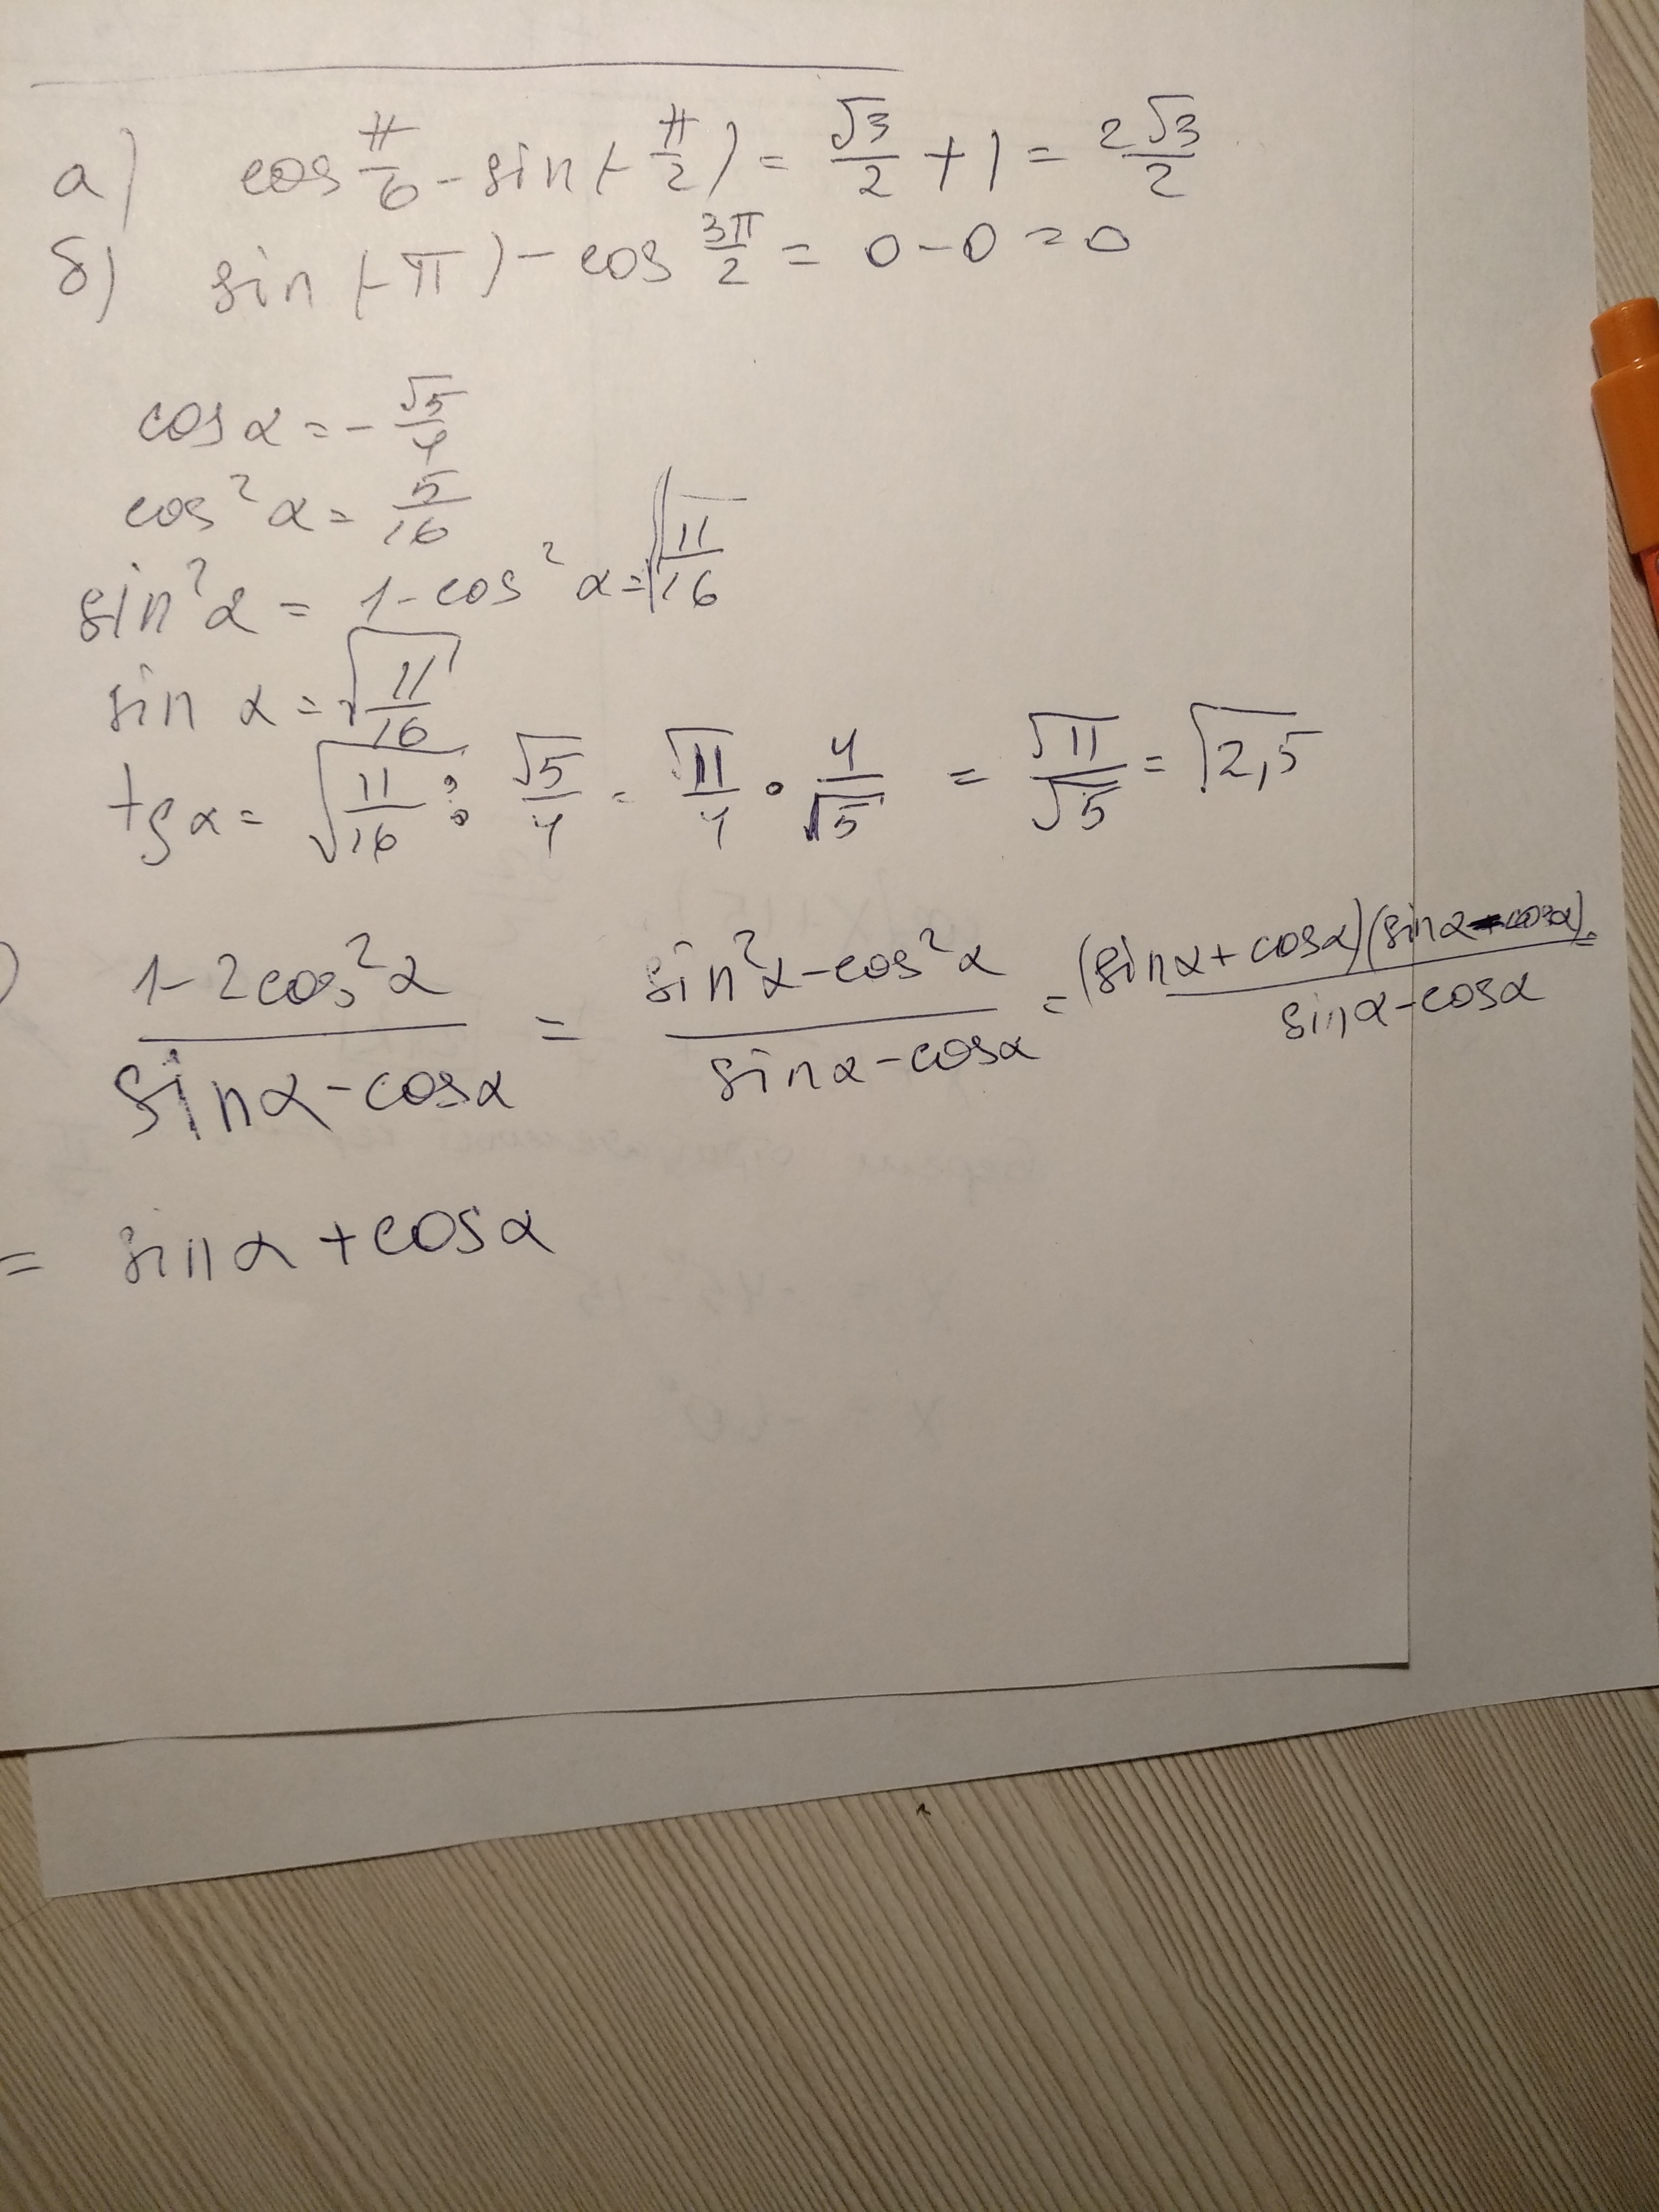 а) cos π/6 - sin(-π/2) = √3/2 + 1 = 2√3/2
б) sin(-π) - cos 3π/2 = 0 - 0 = 0
cos α = - √5/4
cos² α = 5/16
sin² α = 1 - cos² α = √11/16
sin α = √11/16
tg α = √11/16 : √5/4 = √11/4 · 4/√5 = √11/√5 = √2,5
) 1 - 2cos² α / sin α - cos α = sin² α - cos² α / sin α - cos α = (sin α + cos α)(sin α - cos α) / sin α - cos α =
= sin α + cos α